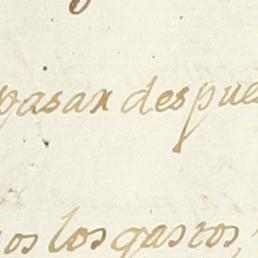 pasar despue
os los gastos,